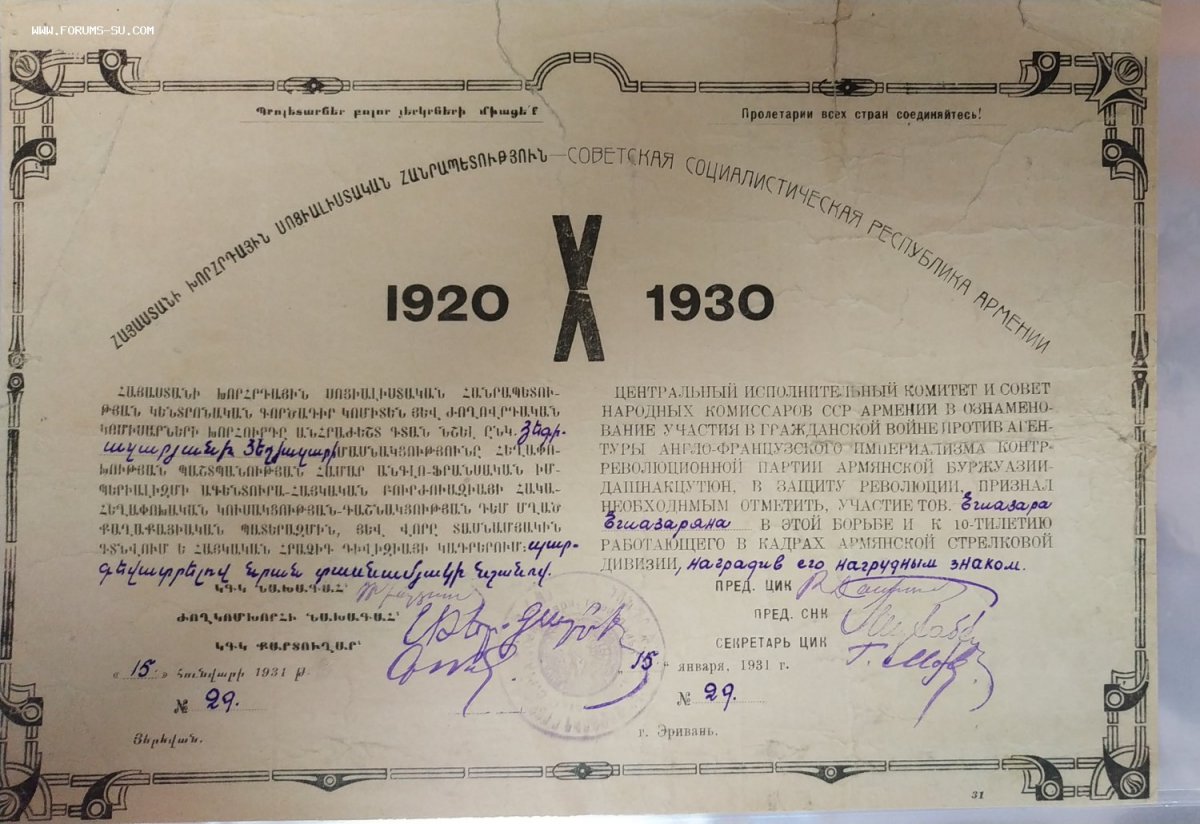 WWW.FORUMS-SU.COM
Պրոլետարներ բոլոր յերկրների միացե՛ք
Пролетарии всех стран соединяйтесь!
ՀԱՅԱՍՏԱՆԻ ԽՈՐՀՐԴԱՅԻՆ ՍՈՑԻԱԼԻՍՏԱԿԱՆ ՀԱՆՐԱՊԵՏՈՒԹՅՈՒՆ — СОВЕТСКАЯ СОЦИАЛИСТИЧЕСКАЯ РЕСПУБЛИКА АРМЕНИИ
1920 X 1930
ՀԱՅԱՍՏԱՆԻ ԽՈՐՀՐԴԱՅԻՆ ՍՈՑԻԱԼԻՍՏԱԿԱՆ ՀԱՆՐԱՊԵՏՈՒ-
ԹՅԱՆ ԿԵՆՏՐՈՆԱԿԱՆ ԳՈՐԾԱԴԻՐ ԿՈՄԻՏԵՆ ՅԵՎ ԺՈՂՈՎՐԴԱԿԱՆ
ԿՈՄԻՍԱՐՆԵՐԻ ԽՈՐՀՈՒՐԴԸ ԱՆՀՐԱԺԵՇՏ ԳՏԱՆ ՆՇԵԼ ԸՆԿ. Յեղի-
ազարյանի Յեղիազարի ՄԱՍՆԱԿՑՈՒԹՅՈՒՆԸ ՀԵՂԱՓՈ-
ԽՈՒԹՅԱՆ ՊԱՇՏՊԱՆՈՒԹՅԱՆ ՀԱՄԱՐ ԱՆԳԼՈ-ՖՐԱՆՍԱԿԱՆ ԻՄ-
ՊԵՐԻԱԼԻԶՄԻ ԱԳԵՆՏՈՒՐԱ-ՀԱՅԿԱԿԱՆ ԲՈՒՐԺՈՒԱԶԻԱՅԻ ՀԱԿԱ-
ՀԵՂԱՓՈԽԱԿԱՆ ԿՈՒՍԱԿՑՈՒԹՅԱՆ-ԴԱՇՆԱԿՑՈՒԹՅԱՆ ԴԵՄ ՄՂԱԾ
ՔԱՂԱՔԱՑԻԱԿԱՆ ՊԱՏԵՐԱԶՄԻՆ, ՅԵՎ, ՎՈՐԸ ՏԱՍՆԱՄՅԱԿԻՆ
ԳՏՆՎՈՒՄ Է ՀԱՅԿԱԿԱՆ ՀՐԱՁԻԳ ԴԻՎԻԶԻԱՅԻ ԿԱԴՐԵՐՈՒՄ: պար-
գևատրելով նրան տասնամյակի նշանով.
ԿԳԿ ՆԱԽԱԳԱՀ՝
ԺՈՂԿՈՄԽՈՐՀԻ ՆԱԽԱԳԱՀ՝
ԿԳԿ ՔԱՐՏՈՒՂԱՐ՝
« 15 » Հունվարի 1931 թ.
№ 29.
Յերեվան.
ЦЕНТРАЛЬНЫЙ ИСПОЛНИТЕЛЬНЫЙ КОМИТЕТ И СОВЕТ
НАРОДНЫХ КОМИССАРОВ ССР АРМЕНИИ В ОЗНАМЕНО-
ВАНИЕ УЧАСТИЯ В ГРАЖДАНСКОЙ ВОЙНЕ ПРОТИВ АГЕН-
ТУРЫ АНГЛО-ФРАНЦУЗСКОГО ИМПЕРИАЛИЗМА КОНТР-
РЕВОЛЮЦИОННОЙ ПАРТИИ АРМЯНСКОЙ БУРЖУАЗИИ-
ДАШНАКЦУТЮН, В ЗАЩИТУ РЕВОЛЮЦИИ, ПРИЗНАЛ
НЕОБХОДНМЫМ ОТМЕТИТЬ, УЧАСТИЕ ТОВ. Егиазара
Егиазаряна В ЭТОЙ БОРЬБЕ И К 10-ТИЛЕТИЮ
РАБОТАЮЩЕГО В КАДРАХ АРМЯНСКОЙ СТРЕЛКОВОЙ
ДИВИЗИИ, наградив его нагрудным знаком.
ПРЕД. ЦИК
ПРЕД. СНК
СЕКРЕТАРЬ ЦИК
„ 15 " января, 1931 г.
№ 29.
г. Эривань.
31